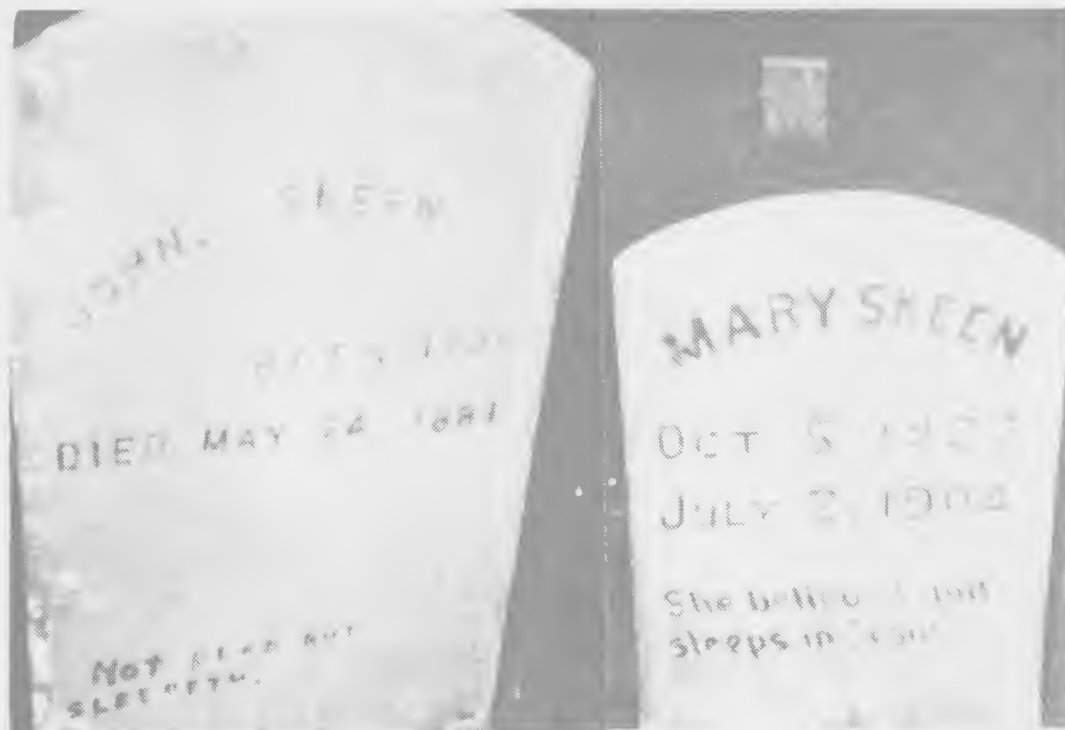 JOHN. SKEEN
DIED MAY 24 1881
NOT DEAD BUT
SLEEPETH.
MARY SKEEN
OCT 5
JULY 2, 1904
She believed and
sleeps in Jesus